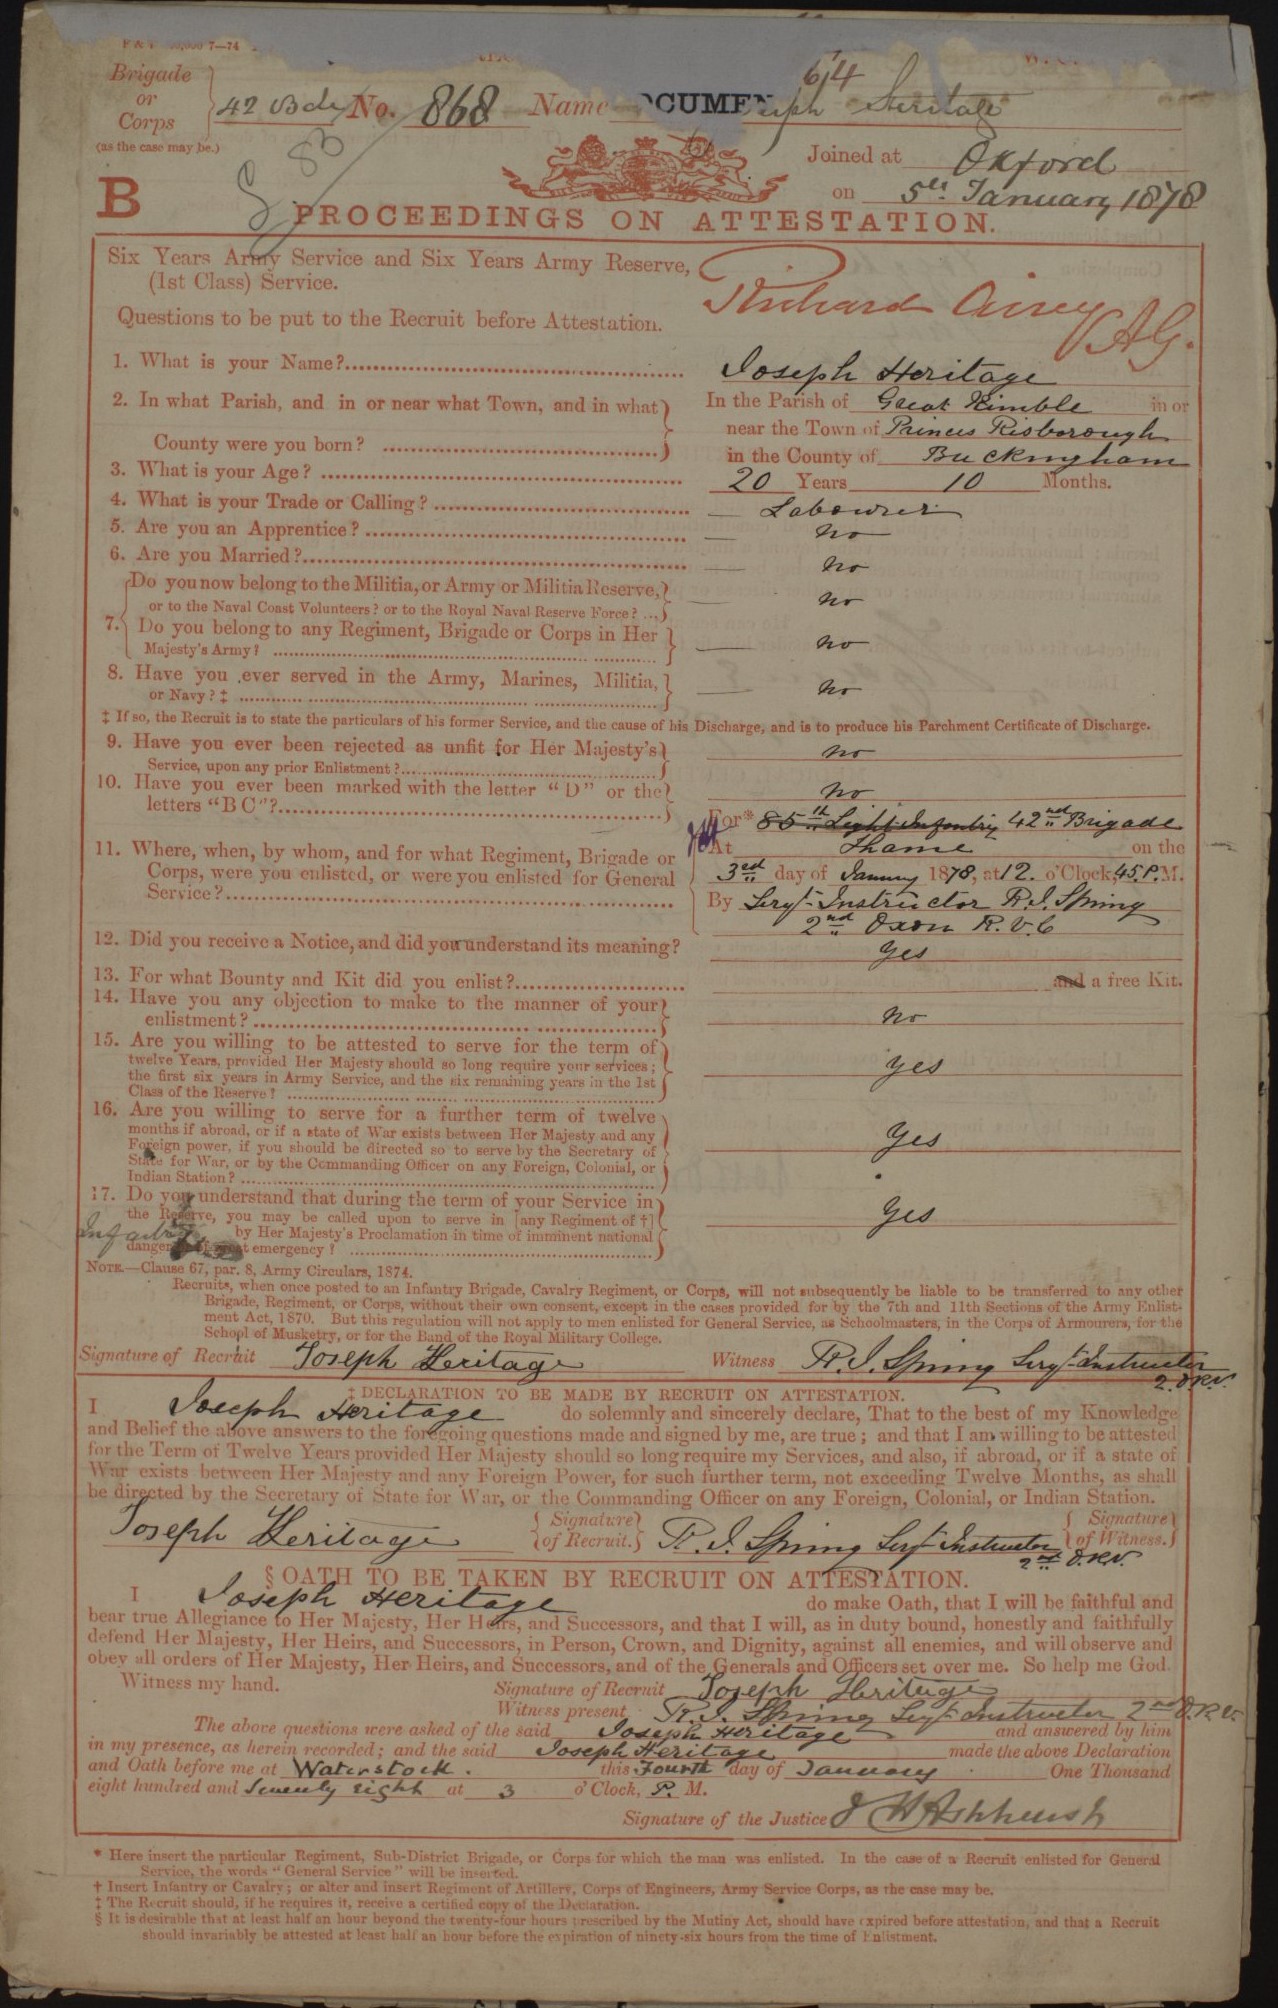 7—74
Brigade
or
Corps
(as the case may be.)
42 Bde No. 868 Name Heritage
64
DOCUMEN
Joined at Oxford
on 5th January 1878
B
PROCEEDINGS ON ATTESTATION.
Six Years Army Service and Six Years Army Reserve,
(1st Class) Service.
Richard Airey
AG.
Questions to be put to the Recruit before Attestation.
1. What is your Name? Joseph Heritage
2. In what Parish, and in or near what Town, and in what County were you born? In the Parish of Great Kimble in or
near the Town of Princes Risborough
in the County of Buckingham
3. What is your Age? 20 Years 10 Months.
4. What is your Trade or Calling? Labourer
5. Are you an Apprentice? no
6. Are you Married? no
7. Do you now belong to the Militia, or Army or Militia Reserve,
or to the Naval Coast Volunteers? or to the Royal Naval Reserve Force? no
Do you belong to any Regiment, Brigade or Corps in Her
Majesty's Army? no
8. Have you ever served in the Army, Marines, Militia,
or Navy? ‡ no
‡ If so, the Recruit is to state the particulars of his former Service, and the cause of his Discharge, and is to produce his Parchment Certificate of Discharge.
9. Have you ever been rejected as unfit for Her Majesty's
Service, upon any prior Enlistment? no
10. Have you ever been marked with the letter "D" or the
letters "BC"? no
11. Where, when, by whom, and for what Regiment, Brigade or
Corps, were you enlisted, or were you enlisted for General
Service?
For* 85th Light Infantry 42nd Brigade
At Thame on the
3rd day of January 1878, at 12. o'Clock, 45. P.M.
By Sergt Instructor R. J. Spring
2nd Oxon R.V.C
12. Did you receive a Notice, and did you understand its meaning? Yes
13. For what Bounty and Kit did you enlist? and a free Kit.
14. Have you any objection to make to the manner of your
enlistment? no
15. Are you willing to be attested to serve for the term of
twelve Years, provided Her Majesty should so long require your services;
the first six years in Army Service, and the six remaining years in the 1st
Class of the Reserve? Yes
16. Are you willing to serve for a further term of twelve
months if abroad, or if a state of War exists between Her Majesty and any
Foreign power, if you should be directed so to serve by the Secretary of
State for War, or by the Commanding Officer on any Foreign, Colonial, or
Indian Station? Yes
17. Do you understand that during the term of your Service in
the Reserve, you may be called upon to serve in [any Regiment of †]
Infantry by Her Majesty's Proclamation in time of imminent national
danger or of great emergency? Yes
NOTE.—Clause 67, par. 8, Army Circulars, 1874.
Recruits, when once posted to an Infantry Brigade, Cavalry Regiment, or Corps, will not subsequently be liable to be transferred to any other
Brigade, Regiment, or Corps, without their own consent, except in the cases provided for by the 7th and 11th Sections of the Army Enlist-
ment Act, 1870. But this regulation will not apply to men enlisted for General Service, as Schoolmasters, in the Corps of Armourers, for the
School of Musketry, or for the Band of the Royal Military College.
Signature of Recruit Joseph Heritage Witness R. J. Spring Sergt Instructor
2. O.R.V.
‡ DECLARATION TO BE MADE BY RECRUIT ON ATTESTATION.
I Joseph Heritage do solemnly and sincerely declare, That to the best of my Knowledge
and Belief the above answers to the foregoing questions made and signed by me, are true; and that I am willing to be attested
for the Term of Twelve Years provided Her Majesty should so long require my Services, and also, if abroad, or if a state of
War exists between Her Majesty and any Foreign Power, for such further term, not exceeding Twelve Months, as shall
be directed by the Secretary of State for War, or the Commanding Officer on any Foreign, Colonial, or Indian Station.
Joseph Heritage { Signature of Recruit. } R. J. Spring Sergt Instructor { Signature of Witness. }
2nd O.R.V.
§ OATH TO BE TAKEN BY RECRUIT ON ATTESTATION.
I Joseph Heritage do make Oath, that I will be faithful and
bear true Allegiance to Her Majesty, Her Heirs, and Successors, and that I will, as in duty bound, honestly and faithfully
defend Her Majesty, Her Heirs, and Successors, in Person, Crown, and Dignity, against all enemies, and will observe and
obey all orders of Her Majesty, Her Heirs, and Successors, and of the Generals and Officers set over me. So help me God.
Witness my hand. Signature of Recruit Joseph Heritage
Witness present R. J. Spring Sergt Instructor 2nd O.R.V.
The above questions were asked of the said Joseph Heritage and answered by him
in my presence, as herein recorded; and the said Joseph Heritage made the above Declaration
and Oath before me at Waterstock. this Fourth day of January One Thousand
eight hundred and Seventy eight at 3 o'Clock, P. M.
Signature of the Justice J H Ashhurst
* Here insert the particular Regiment, Sub-District Brigade, or Corps for which the man was enlisted. In the case of a Recruit enlisted for General
Service, the words "General Service" will be inserted.
† Insert Infantry or Cavalry; or alter and insert Regiment of Artillery, Corps of Engineers, Army Service Corps, as the case may be.
‡ The Recruit should, if he requires it, receive a certified copy of the Declaration.
§ It is desirable that at least half an hour beyond the twenty-four hours prescribed by the Mutiny Act, should have expired before attestation, and that a Recruit
should invariably be attested at least half an hour before the expiration of ninety-six hours from the time of Enlistment.